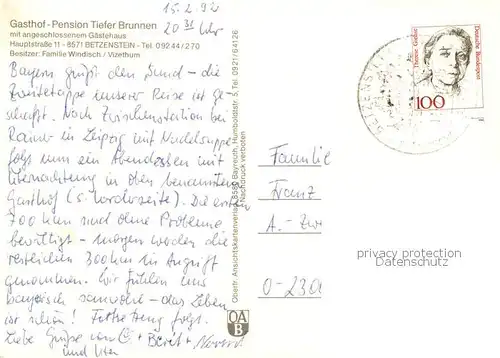 15.2.92
20 31 Uhr
Gasthof - Pension Tiefer Brunnen
mit angeschlossenem Gästehaus
Hauptstraße 11 - 8571 BETZENSTEIN - Tel. 09244/270
Besitzer: Familie Windisch / Vizethum
Bayern grüßt den Sund – die
Zweitetappe unserer Reise ist ge-
schafft. Nach Zwischenstation bei
in Leipzig mit Nudelsuppe
folgt nun ein Abendessen mit
Übernachtung in oben benanntem
Gasthof (s. Vorderseite). Die ersten
700 km sind ohne Probleme
bewältigt – morgen werden die
restlichen 300 km in Angriff
genommen. Wir fühlen uns
bayrisch sauwohl – das Leben
ist schön! Fortsetzung folgt.
Liebe Grüße von + Berit +
und
Oberfr. Ansichtskartenverlag, 8580 Bayreuth, Humboldtstr. 5, Tel. 0921/64126
Nachdruck verboten
OA
B
BETZENSTEIN
Therese Giehse
Deutsche Bundespost
100
Familie
Franz
A.-Zw
O-230
privacy protection
Datenschutz